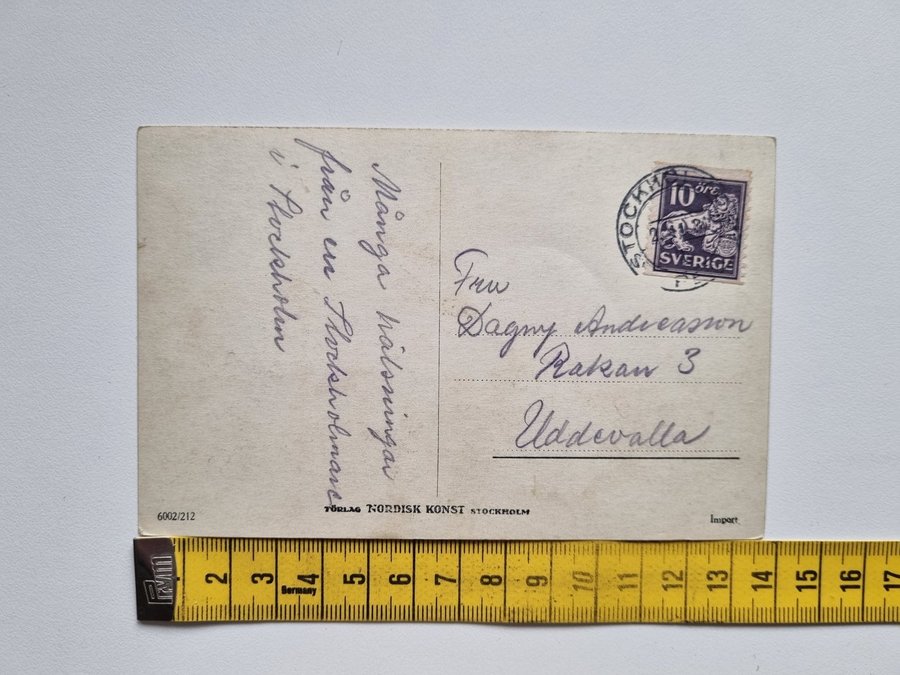 Många hälsningar
från en Stockholmare
i Stockholm
STOCKHOL
10 öre
SVERIGE
Fru
Dagny Andreasson
Rakan 3
Uddevalla
6002/212
FÖRLAG NORDISK KONST STOCKHOLM
Import
2 3 4 5 6 7 8 9 10 11 12 13 14 15 16 17
Germany